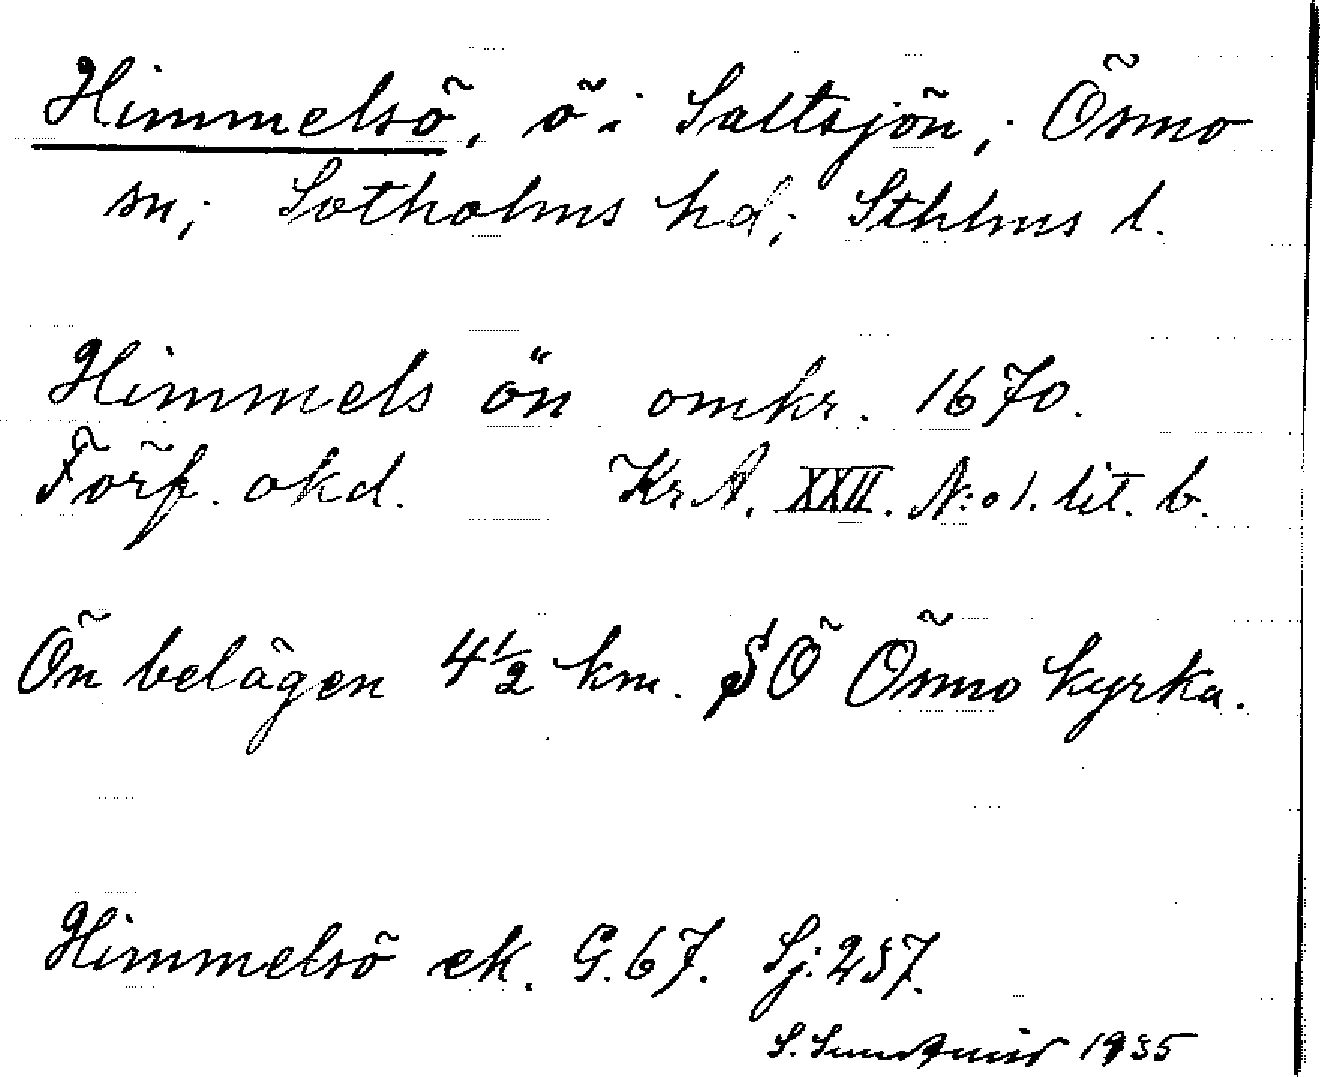 Himmelsö, ö i Saltsjön; Ösmo
sn; Sotholms hd; Sthlms l.
Himmels ön omkr. 1670.
Förf. okd. Kr. A. XXII. N:o 1. lit. b.
Ön belägen 4 1/2 km. SÖ Ösmo kyrka.
Himmelsö ek. G. 67. Sj: 257.
S. 1935